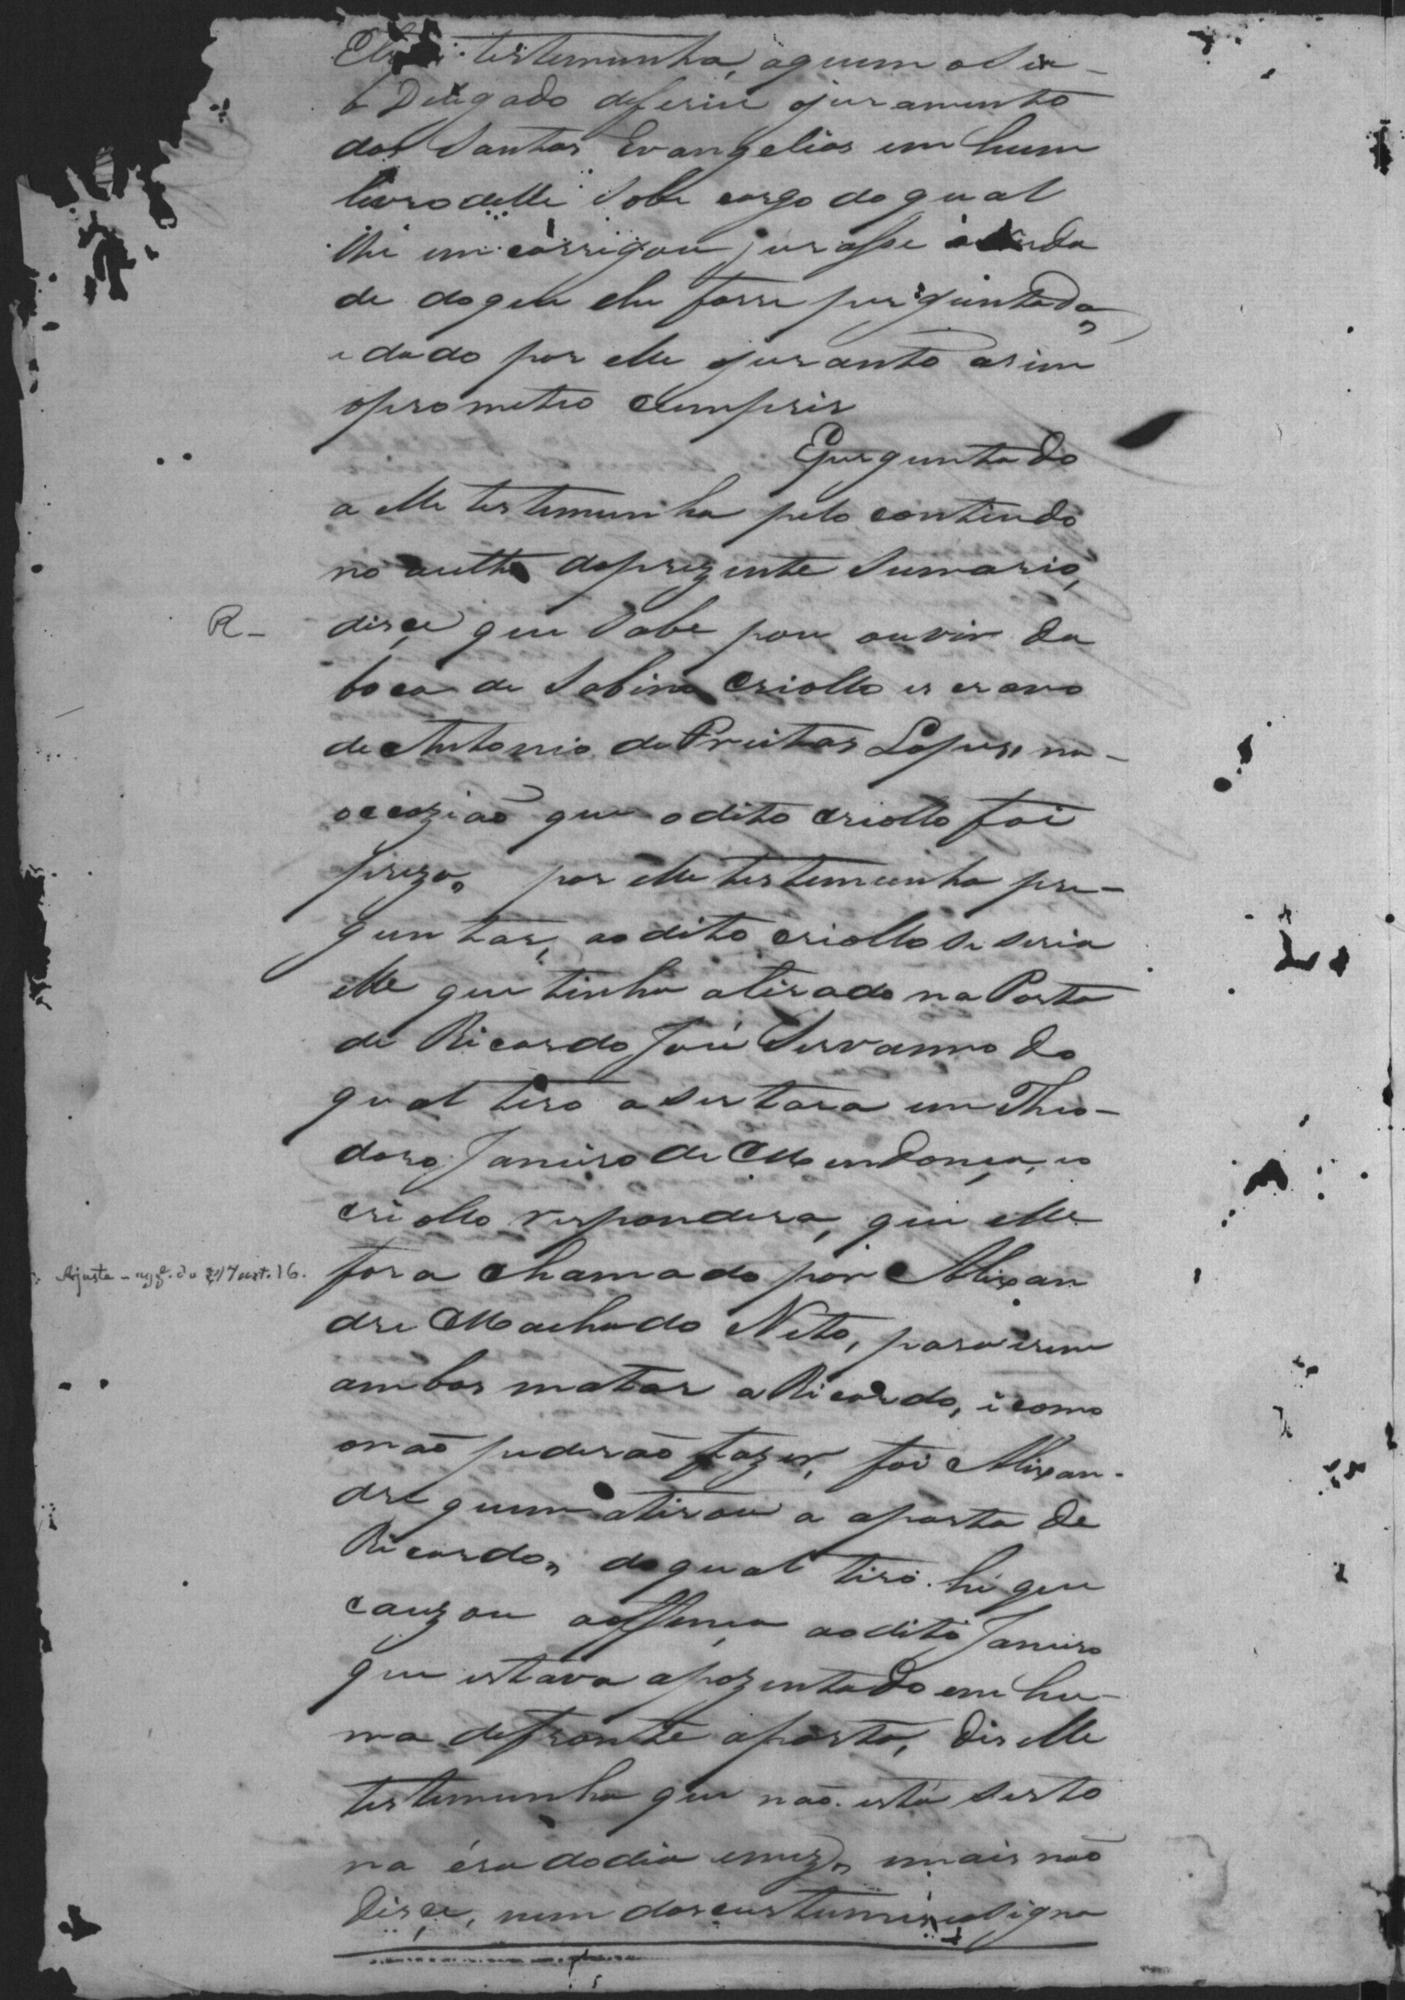 testemunha, aquem o Su-
b Delegado deferiu ojuramento
dos Santos Evangelios em hum
livro delle Sobe cargo do qual
lhe emcarrigou jurasse averda
de doque elle fosse purguntado,
e dado por elle ojuramto asim
oprometeo Cumprir
Epurguntado
a elle testemunha pelo contiudo
no autto doprezente Sumario,
R - disçe que Sabe pou ouvir da
boca de Sabino Criollo escravo
de Antonio de Freitas Lopes, na
occazião que odito criollo foi
prezo, por elle testemunha pre-
guntar, aodito criollo se seria
elle que tinha atirado na Porta
de Ricardo José Servanno do
qual tiro asertara em Theo-
doro Janeiro de Mendonça, eo
criollo respondera, que elle
fora chamado por Alixan
dre Machado Neto, para irem
ambos matar a Ricardo, i como
onão puderão fazer, foi Alixan-
dre quem atirou a aporta de
Ricardo, doqual tiro hé que
cauzou aoffença aodito Janeiro
que estava apozentado em hu-
ma defronte aporta, Dis elle
testemunha que não está serto
na éra dodia emez, emais não
Disçe, nem doscustumes, easigna